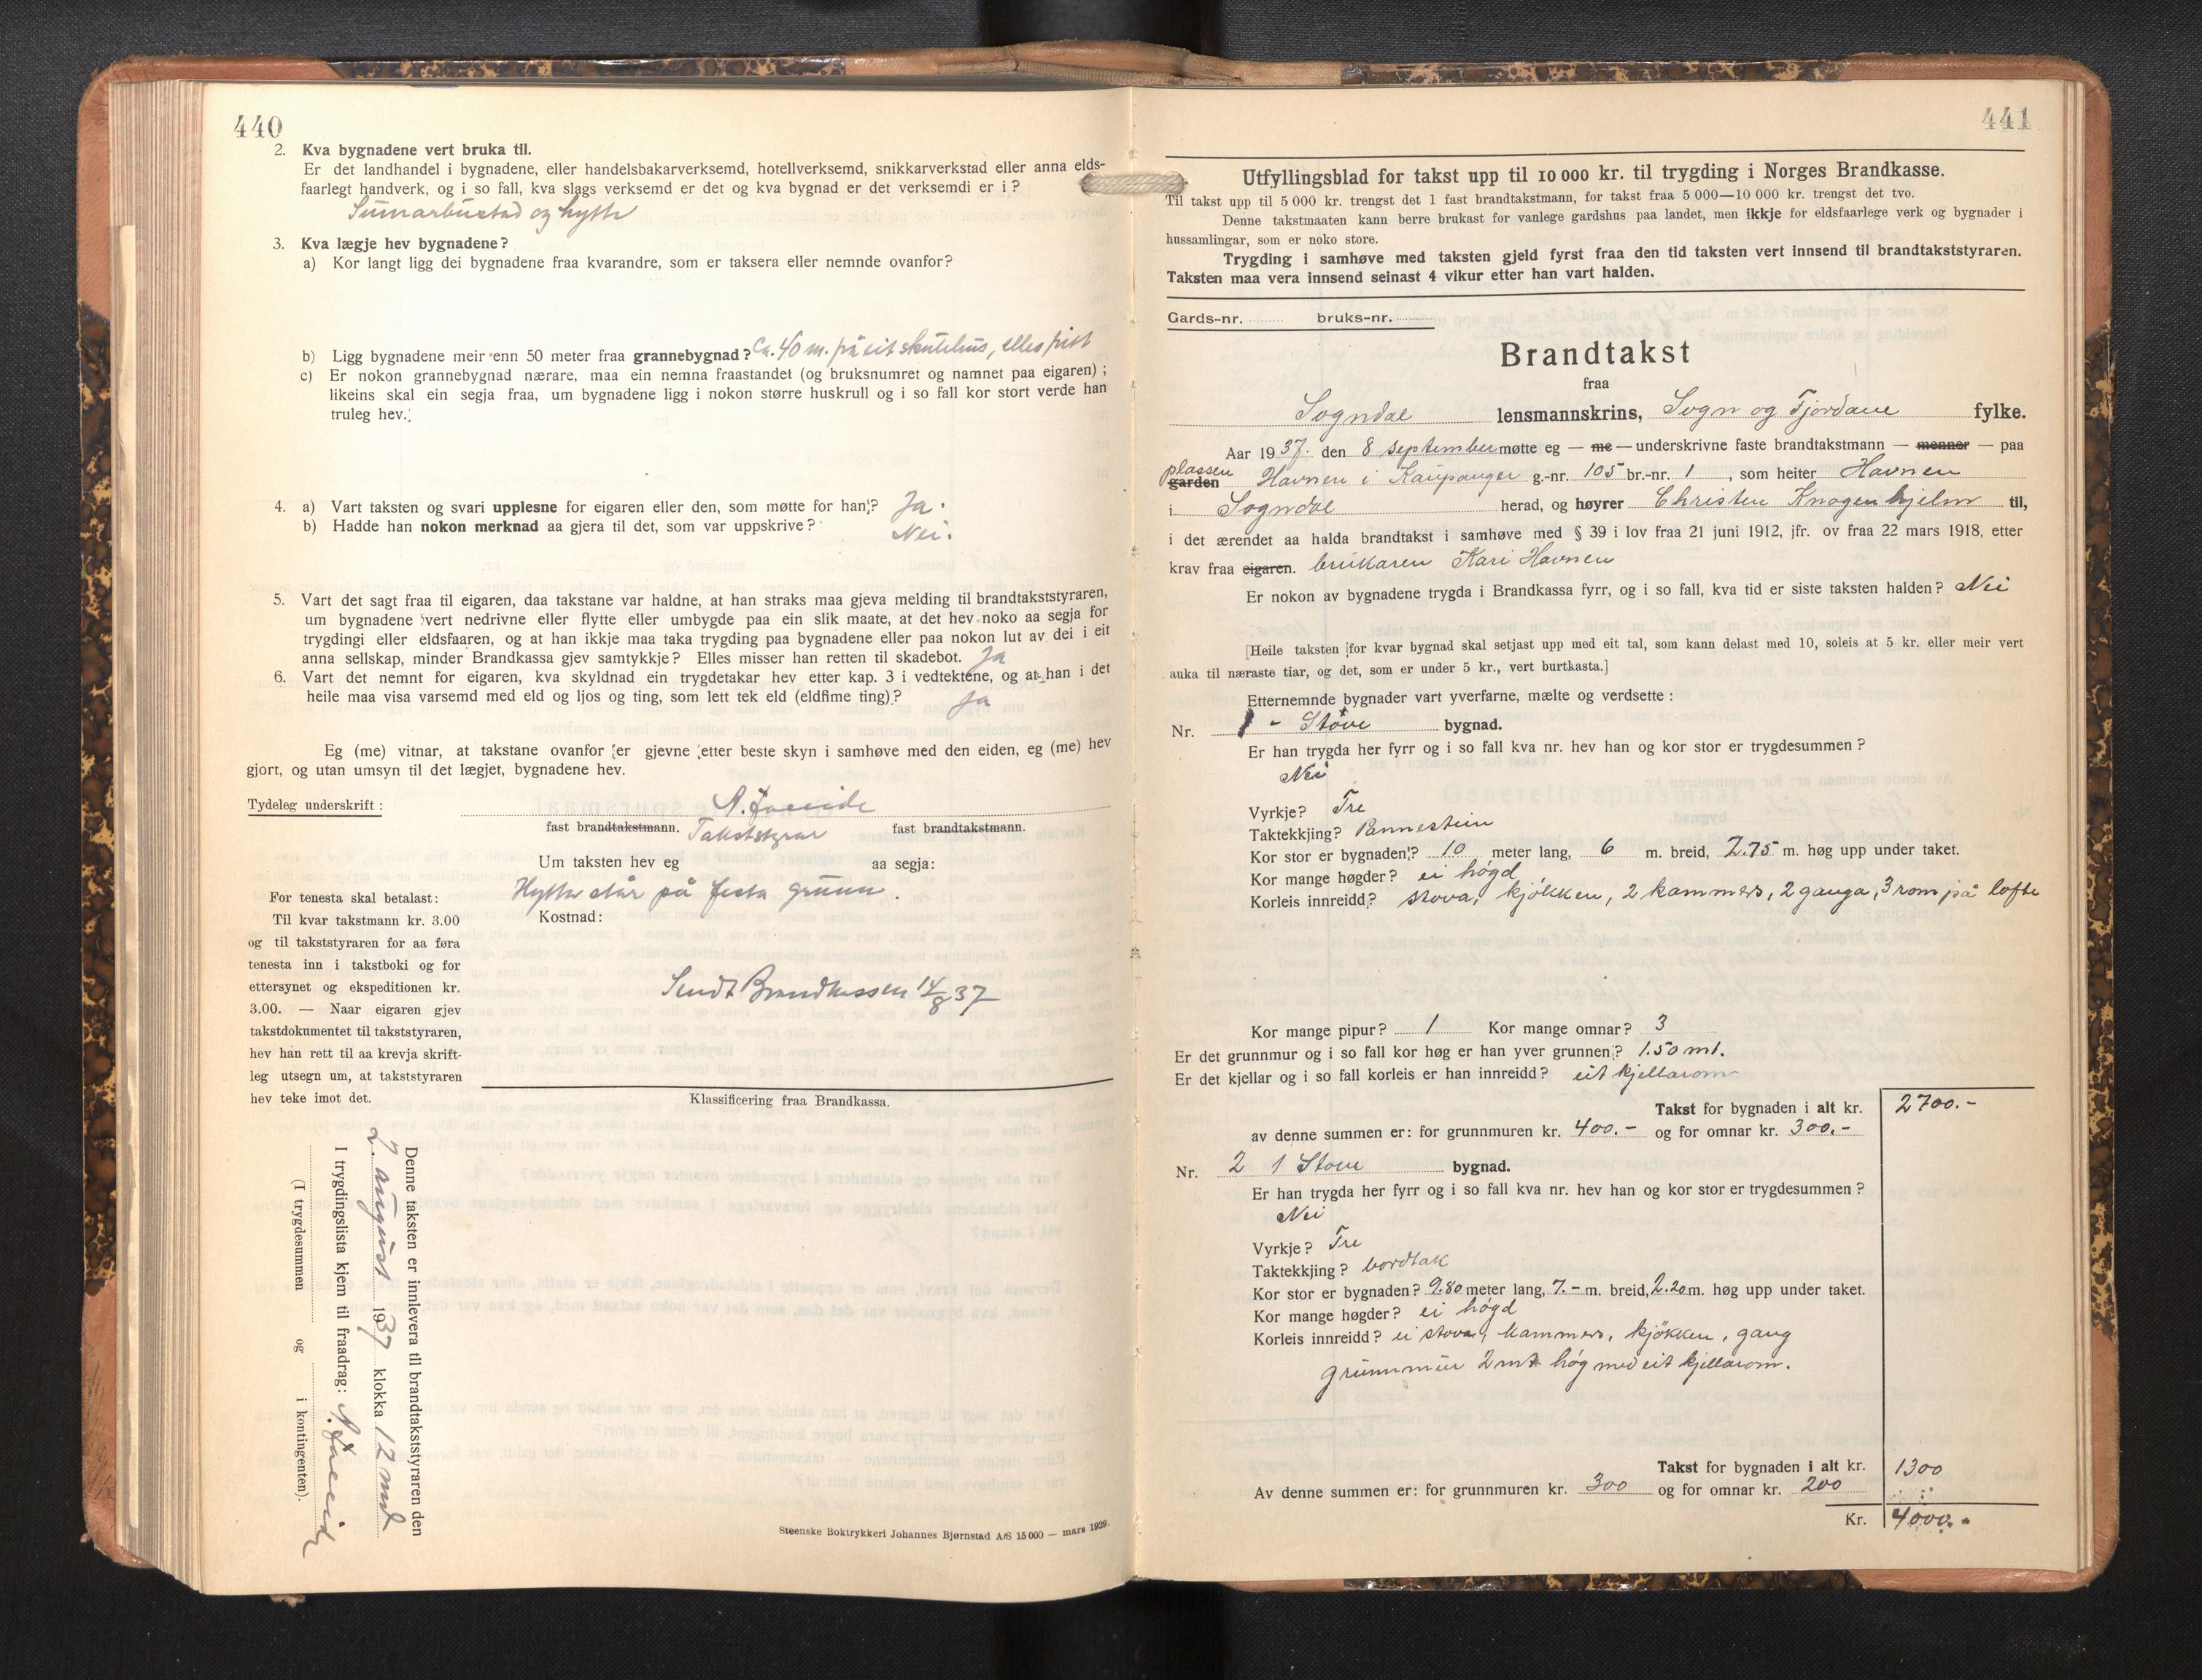 440
2. Kva bygnadene vert bruka til.
Er det landhandel i bygnadene, eller handelsbakarverksemd, hotellverksemd, snikkarverkstad eller anna elds-
faarlegt handverk, og i so fall, kva slags verksemd er det og kva bygnad er det verksemdi er i?
Sumarbustad og hytte
3. Kva lægje hev bygnadene?
a) Kor langt ligg dei bygnadene fraa kvarandre, som er taksera eller nemnde ovanfor?
b) Ligg bygnadene meir enn 50 meter fraa grannebygnad? Ca. 40 m. på eit skutehus, elles fritt
c) Er nokon grannebygnad nærare, maa ein nemna fraastandet (og bruksnumret og namnet paa eigaren);
likeins skal ein segja fraa, um bygnadene ligg i nokon større huskrull og i so fall kor stort verde han
truleg hev.
4. a) Vart taksten og svari upplesne for eigaren eller den, som møtte for han? Ja.
b) Hadde han nokon merknad aa gjera til det, som var uppskrive? Nei.
5. Vart det sagt fraa til eigaren, daa takstane var haldne, at han straks maa gjeva melding til brandtakststyraren,
um bygnadene vert nedrivne eller flytte eller umbygde paa ein slik maate, at det hev noko aa segja for
trygdingi eller eldsfaaren, og at han ikkje maa taka trygding paa bygnadene eller paa nokon lut av dei i eit
anna sellskap, minder Brandkassa gjev samtykkje? Elles misser han retten til skadebot. Ja
6. Vart det nemnt for eigaren, kva skyldnad ein trygdetakar hev etter kap. 3 i vedtektene, og at han i det
heile maa visa varsemd med eld og ljos og ting, som lett tek eld (eldfime ting)? Ja
Eg (me) vitnar, at takstane ovanfor er gjevne etter beste skyn i samhøve med den eiden, eg (me) hev
gjort, og utan umsyn til det lægjet, bygnadene hev.
Tydeleg underskrift:
fast brandtakstmann. Takststyrar fast brandtakstmann.
Um taksten hev eg aa segja:
Hytta står på festa grunn.
Kostnad:
For tenesta skal betalast:
Til kvar takstmann kr. 3.00
og til takststyraren for aa føra
tenesta inn i takstboki og for
ettersynet og ekspeditionen kr.
3.00. — Naar eigaren gjev
takstdokumentet til takststyraren,
hev han rett til aa krevja skrift-
leg utsegn um, at takststyraren
hev teke imot det.
Sendt Brandkassen 14/8 37
Klassificering fraa Brandkassa.
Denne taksten er innlevera til brandtakststyraren den
2. august 1937 klokka 12 md
I trygdingslista kjem til fraadrag:
(I trygdesummen og i kontingenten).
Steenske Boktrykkeri Johannes Bjørnstad A/S 15 000 — mars 1929.
441
Utfyllingsblad for takst upp til 10 000 kr. til trygding i Norges Brandkasse.
Til takst upp til 5 000 kr. trengst det 1 fast brandtakstmann, for takst fraa 5 000—10 000 kr. trengst det tvo.
Denne takstmaaten kann berre brukast for vanlege gardshus paa landet, men ikkje for eldsfaarlege verk og bygnader i
hussamlingar, som er noko store.
Trygding i samhøve med taksten gjeld fyrst fraa den tid taksten vert innsend til brandtakststyraren.
Taksten maa vera innsend seinast 4 vikur etter han vart halden.
Gards-nr. bruks-nr.
Brandtakst
fraa
Sogndal lensmannskrins, Sogn og Fjordane fylke.
Aar 1937. den 8 september møtte eg — me — underskrivne faste brandtakstmann — menner — paa
plassen
garden Havnen i Kaupanger g.-nr. 105 br.-nr. 1, som heiter Havnen
i Sogndal herad, og høyrer Christen Knagenhjelm til,
i det ærendet aa halda brandtakst i samhøve med § 39 i lov fraa 21 juni 1912, jfr. ov fraa 22 mars 1918, etter
krav fraa eigaren. brukaren Kari Havnen
Er nokon av bygnadene trygda i Brandkassa fyrr, og i so fall, kva tid er siste taksten halden? Nei
[Heile taksten for kvar bygnad skal setjast upp med eit tal, som kann delast med 10, soleis at 5 kr. eller meir vert
auka til næraste tiar, og det, som er under 5 kr., vert burtkasta.]
Etternemnde bygnader vart yverfarne, mælte og verdsette:
Nr. 1 - Stove bygnad.
Er han trygda her fyrr og i so fall kva nr. hev han og kor stor er trygdesummen?
Nei
Vyrkje? Tre
Taktekkjing? Pannestein
Kor stor er bygnaden? 10 meter lang, 6 m. breid, 2.75 m. høg upp under taket.
Kor mange høgder? ei högd
Korleis innreidd? stova, kjökken, 2 kammers, 2 ganga, 3 rom på lofte
Kor mange pipur? 1 Kor mange omnar? 3
Er det grunnmur og i so fall kor høg er han yver grunnen? 1.50 mt.
Er det kjellar og i so fall korleis er han innreidd? eit kjellarom
Takst for bygnaden i alt kr. 2700.-
av denne summen er: for grunnmuren kr. 400.- og for omnar kr. 300.-
Nr. 2 1 Stove bygnad.
Er han trygda her fyrr og i so fall kva nr. hev han og kor stor er trygdesummen?
Nei
Vyrkje? Tre
Taktekkjing? bordtak
Kor stor er bygnaden? 9.80 meter lang, 7.- m. breid, 2.20 m. høg upp under taket.
Kor mange høgder? ei högd
Korleis innreidd? ei stova, kammers, kjökken, gang
grunnmur 2 mt. hög med eit kjellarom.
Takst for bygnaden i alt kr. 1300
Av denne summen er: for grunnmuren kr. 300 og for omnar kr. 200
Kr. 4000.-